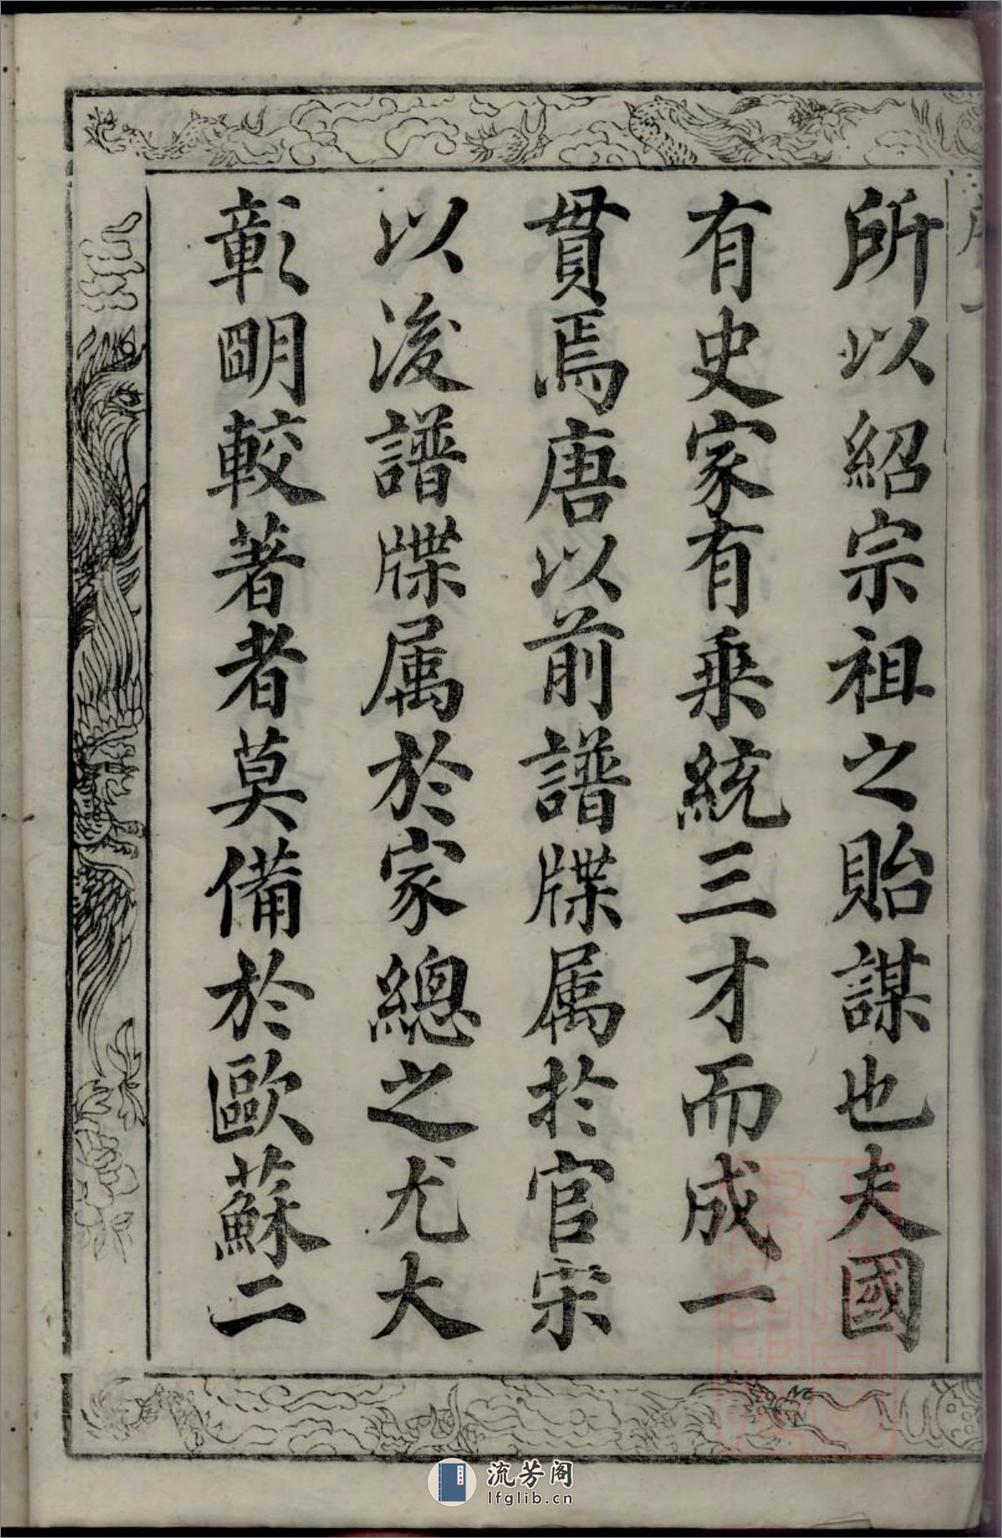 所以紹宗祖之貽謀也夫國
有史家有乗統三才而成一
貫焉唐以前譜牒属於官宋
以後譜牒属於家總之尤大
彰明較著者莫備於歐蘇二
流芳阁
lfglib.cn